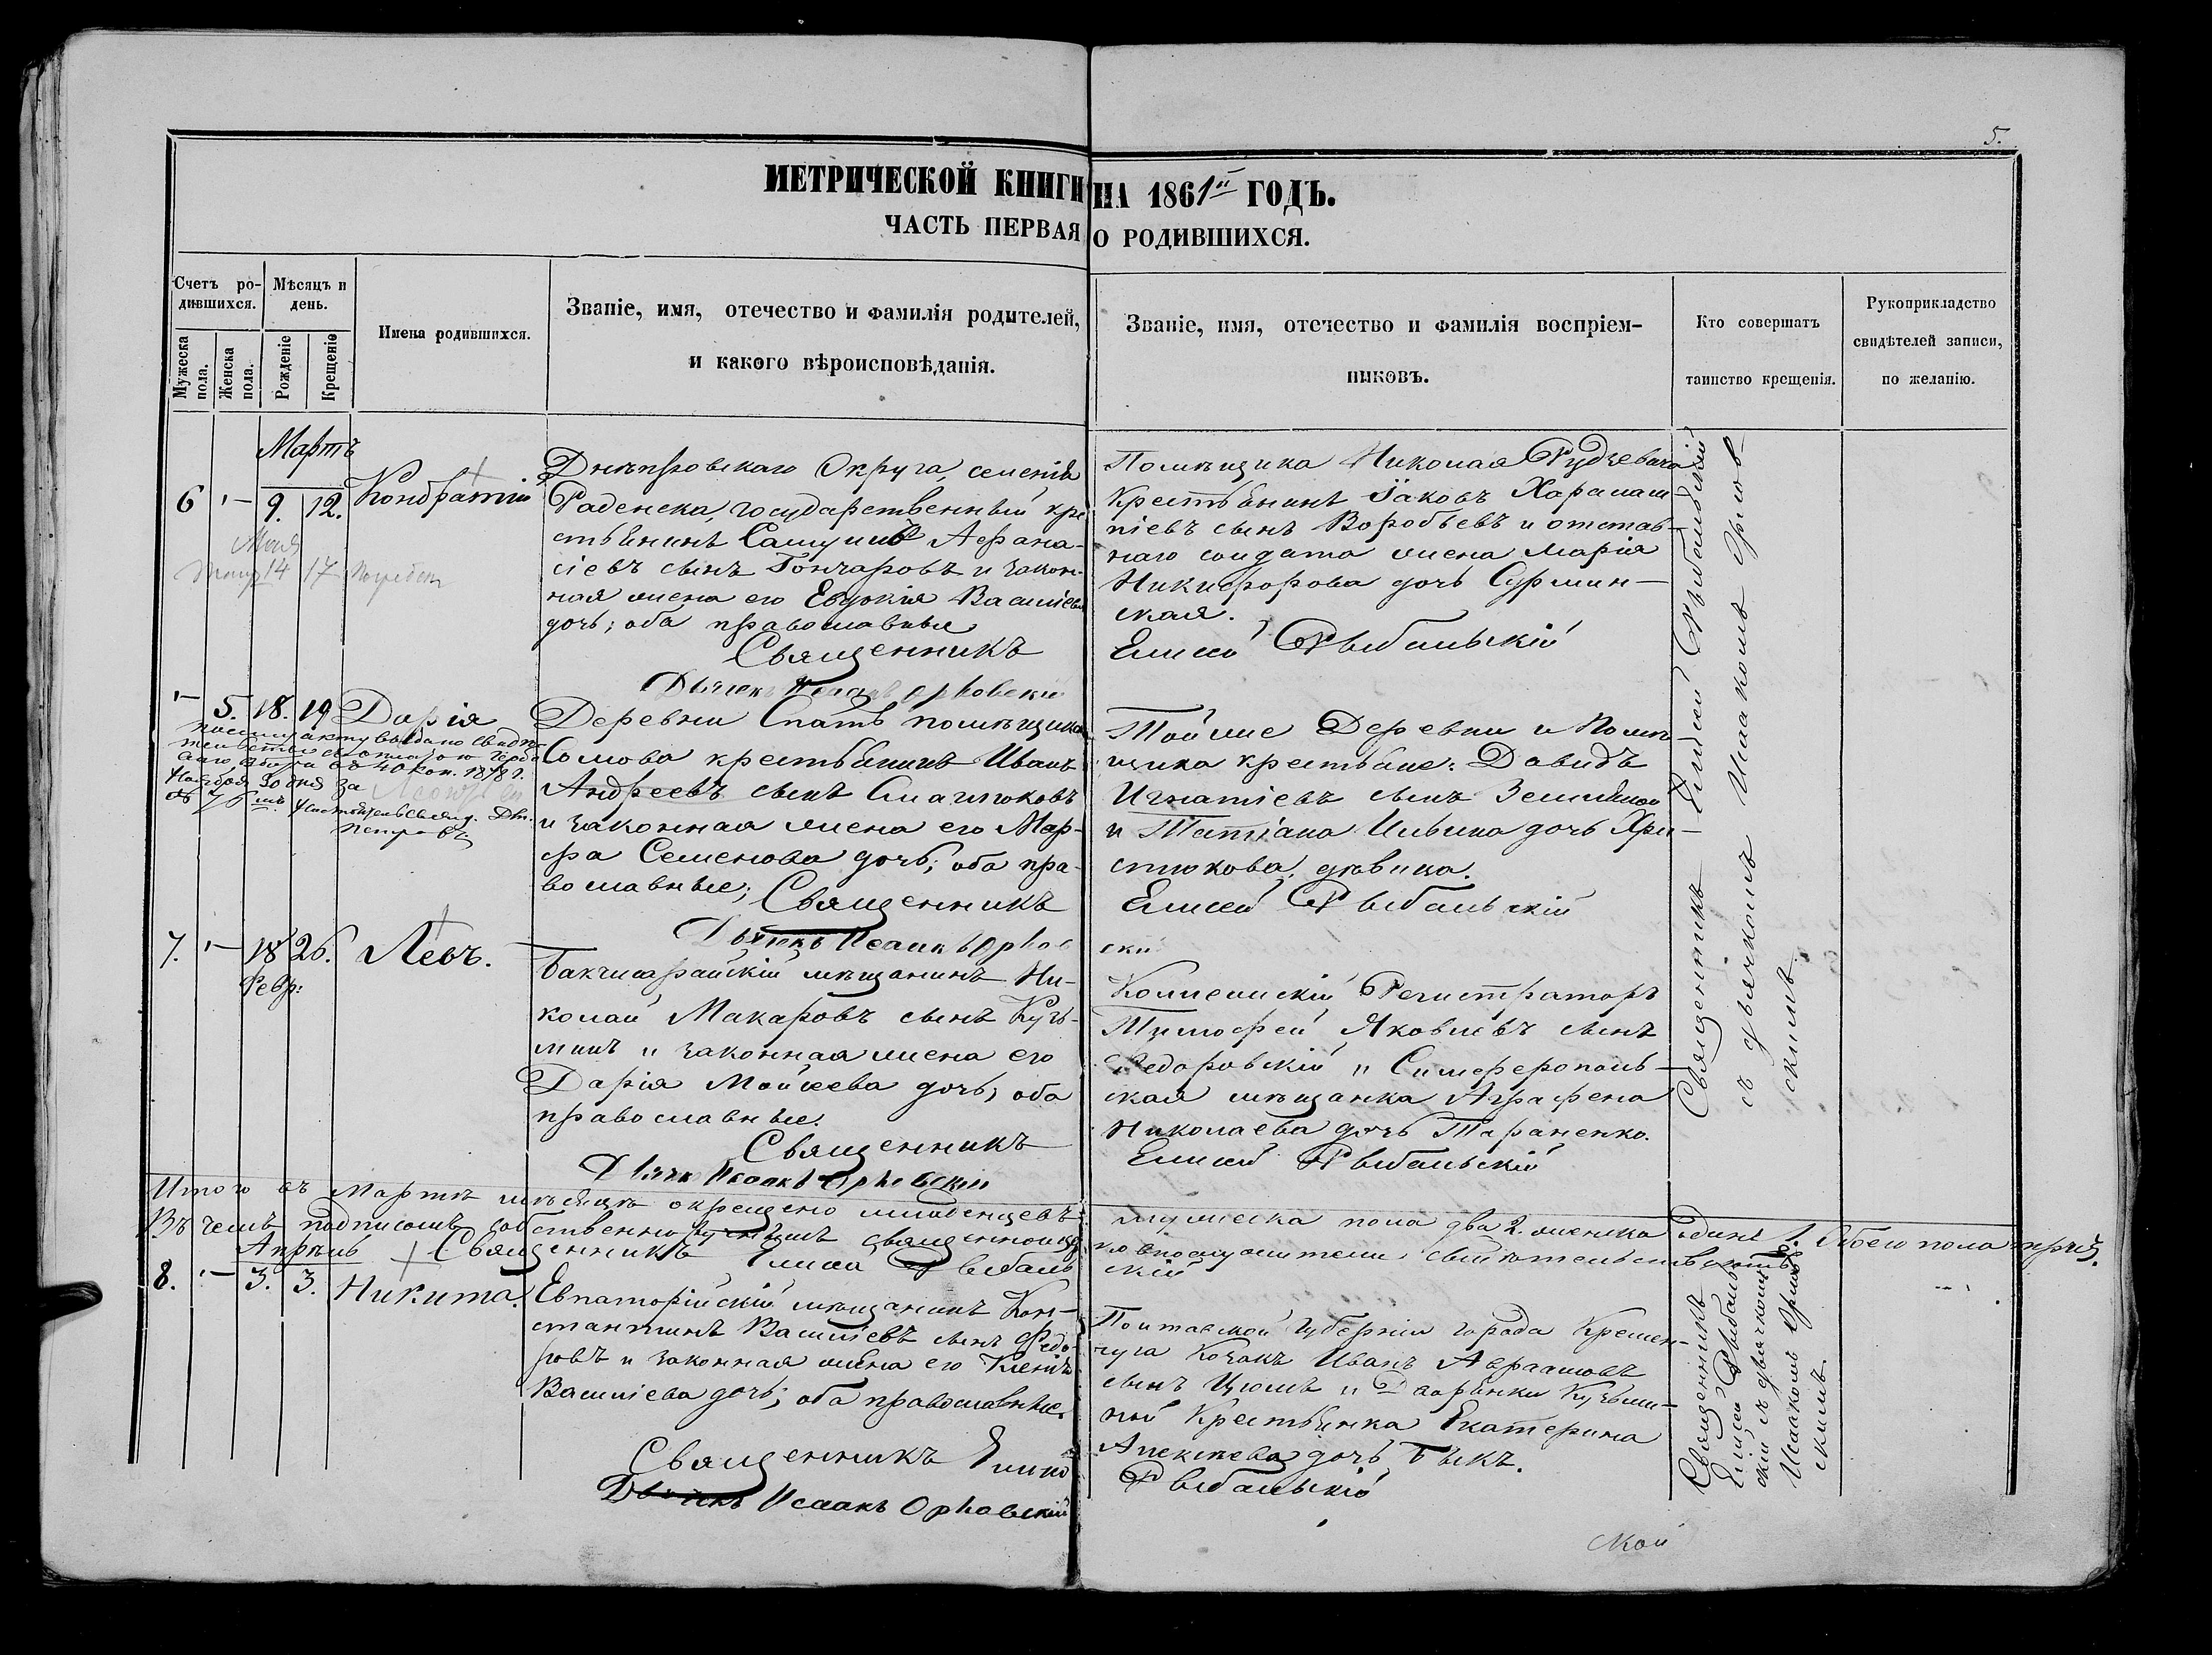 5.
МЕТРИЧЕСКОЙ КНИГИ НА 1861й ГОДЪ.
ЧАСТЬ ПЕРВАЯ О РОДИВШИХСЯ.
Счетъ ро-
дившихся.
Мужеска
пола.
Женска
пола.
Мѣсяцъ и
день.
Рожденіе
Крещеніе
Имена родившихся.
Званіе, имя, отечество и фамилія родителей,
и какого вѣроисповѣданія.
Званіе, имя, отечество и фамилія воспріем-
никовъ.
Кто совершатъ
таинство крещенія.
Рукоприкладство
свидѣтелей записи,
по желанію.
Мартъ
6 9. 12. Кондратій
14 17
Днѣпровскаго Округа, селенія
Раденска, государственный кре
стьянинъ Самуилъ Афана-
сіевъ сынъ Гончаровъ и закон-
ная жена его Евдокія Василіева
дочь; оба православные
Священникъ
Дьячекъ Исаакъ Орловскій
Помѣщика Николая Рудзевича
Крестьянинъ Іаковъ Харалам-
піевъ сынъ Воробьевъ и отстав-
наго солдата жена Марія
Никифорова дочь Сурмин-
ская.
Елисей Рыбальскій
5. 18. 19 Дарія
40 коп. 1878 г.
Ноября 30 дня за
Деревни Спатъ помѣщика
Сомова крестьянинъ Иванъ
Андреевъ сынъ
и законная жена его Мар-
фа Семенова дочь; оба пра-
вославные; Священникъ
Дьячекъ Исаакъ Орлов
Той же Деревни и Помѣ
щика крестьяне: Давидъ
Игнатіевъ сынъ
и Татіана Ильина дочь Хри-
стюкова, дѣвица.
Елисей Рыбальскій
скій
7. 18 26. Левъ.
Февр:
Бакчисарайскій мѣщанинъ Ни-
колай Макаровъ сынъ Кузь-
минъ и законная жена его
Дарія Мойсеева дочь, оба
православные.
Священникъ
Дьячекъ Исаакъ Орловскій
Коллежскій Регистраторъ
Тимофей Яковлевъ сынъ
Федоровскій и Симферополь-
ская мѣщанка Аграфена
Николаева дочь Тараненко.
Елисей Рыбальскій
Священникъ Елисей Рыбальскій
съ дьячкомъ Исаакомъ Орлов-
скимъ.
Итого въ Мартѣ мѣсяцѣ окрещено младенцевъ мужеска пола два 2. женска одинъ 1. Обоего пола три 3.
Въ чемъ подписомъ собственноручнымъ священноцер
ковнослужители свидѣтельствуютъ
Священникъ Елисей Рыбаль
скій
Апрѣль
8. 3. 3. Никита.
Евпаторійскій мѣщанинъ Кон-
стантинъ Василіевъ сынъ Федо-
ровъ и законная жена его
Василіева дочь; оба православные.
Священникъ Елисей
Дьячекъ Исаакъ Орловскій
Полтавской Губерніи города Кремен-
чуга Козакъ Иванъ Авраамовъ
сынъ и Дворянки Кузьми-
ной Крестьянка Екатерина
Алексѣева дочь Быкъ.
Рыбальскій
Священникъ
Елисей Рыбаль-
скій съ дьячкомъ
Исаакомъ Орлов-
скимъ.